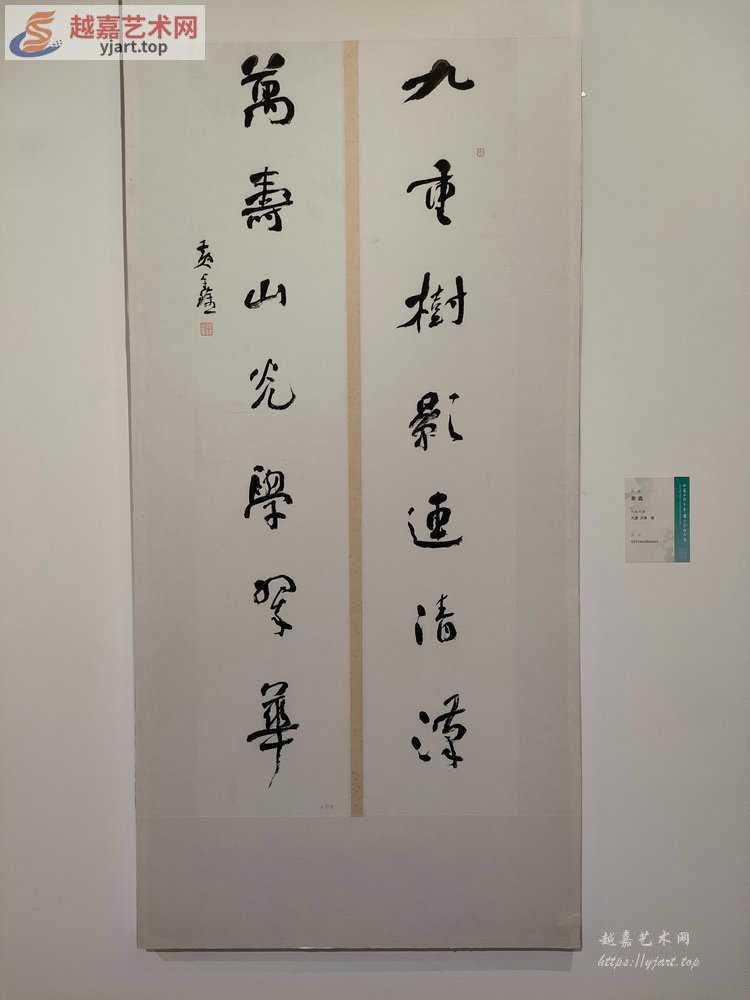 越嘉艺术网
yjart.top
九重樹影連清漢
萬壽山光學翠華
越嘉艺术网
https://yjart.top